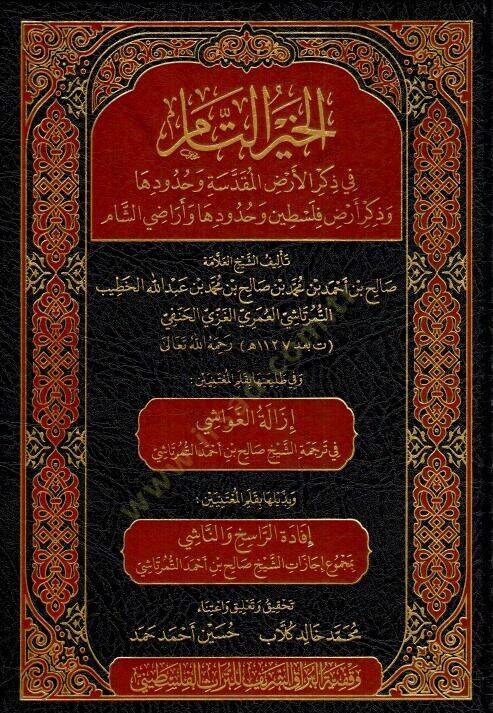 الخبر التام
في ذكر الأرض المقدسة وحدودها
وذكر أرض فلسطين وحدودها وأراضي الشام
تأليف الشيخ العلامة
صالح بن أحمد بن محمد بن صالح بن محمد بن عبد الله الخطيب
التمرتاشي العمري الغزي الحنفي
(ت بعد ١١٢٧هـ) رحمه الله تعالى
وفي طليعتها بقلم المعتنيين:
إزالة الغواشي
في ترجمة الشيخ صالح بن أحمد التمرتاشي
وبذيلها بقلم المعتنيين:
إفادة الراسخ والناشي
بمجموع إجازات الشيخ صالح بن أحمد التمرتاشي
تحقيق وتعليق واعتناء
محمد خالد كلاب حسين أحمد حمد
وقفية البراق الشريف للتراث الفلسطيني